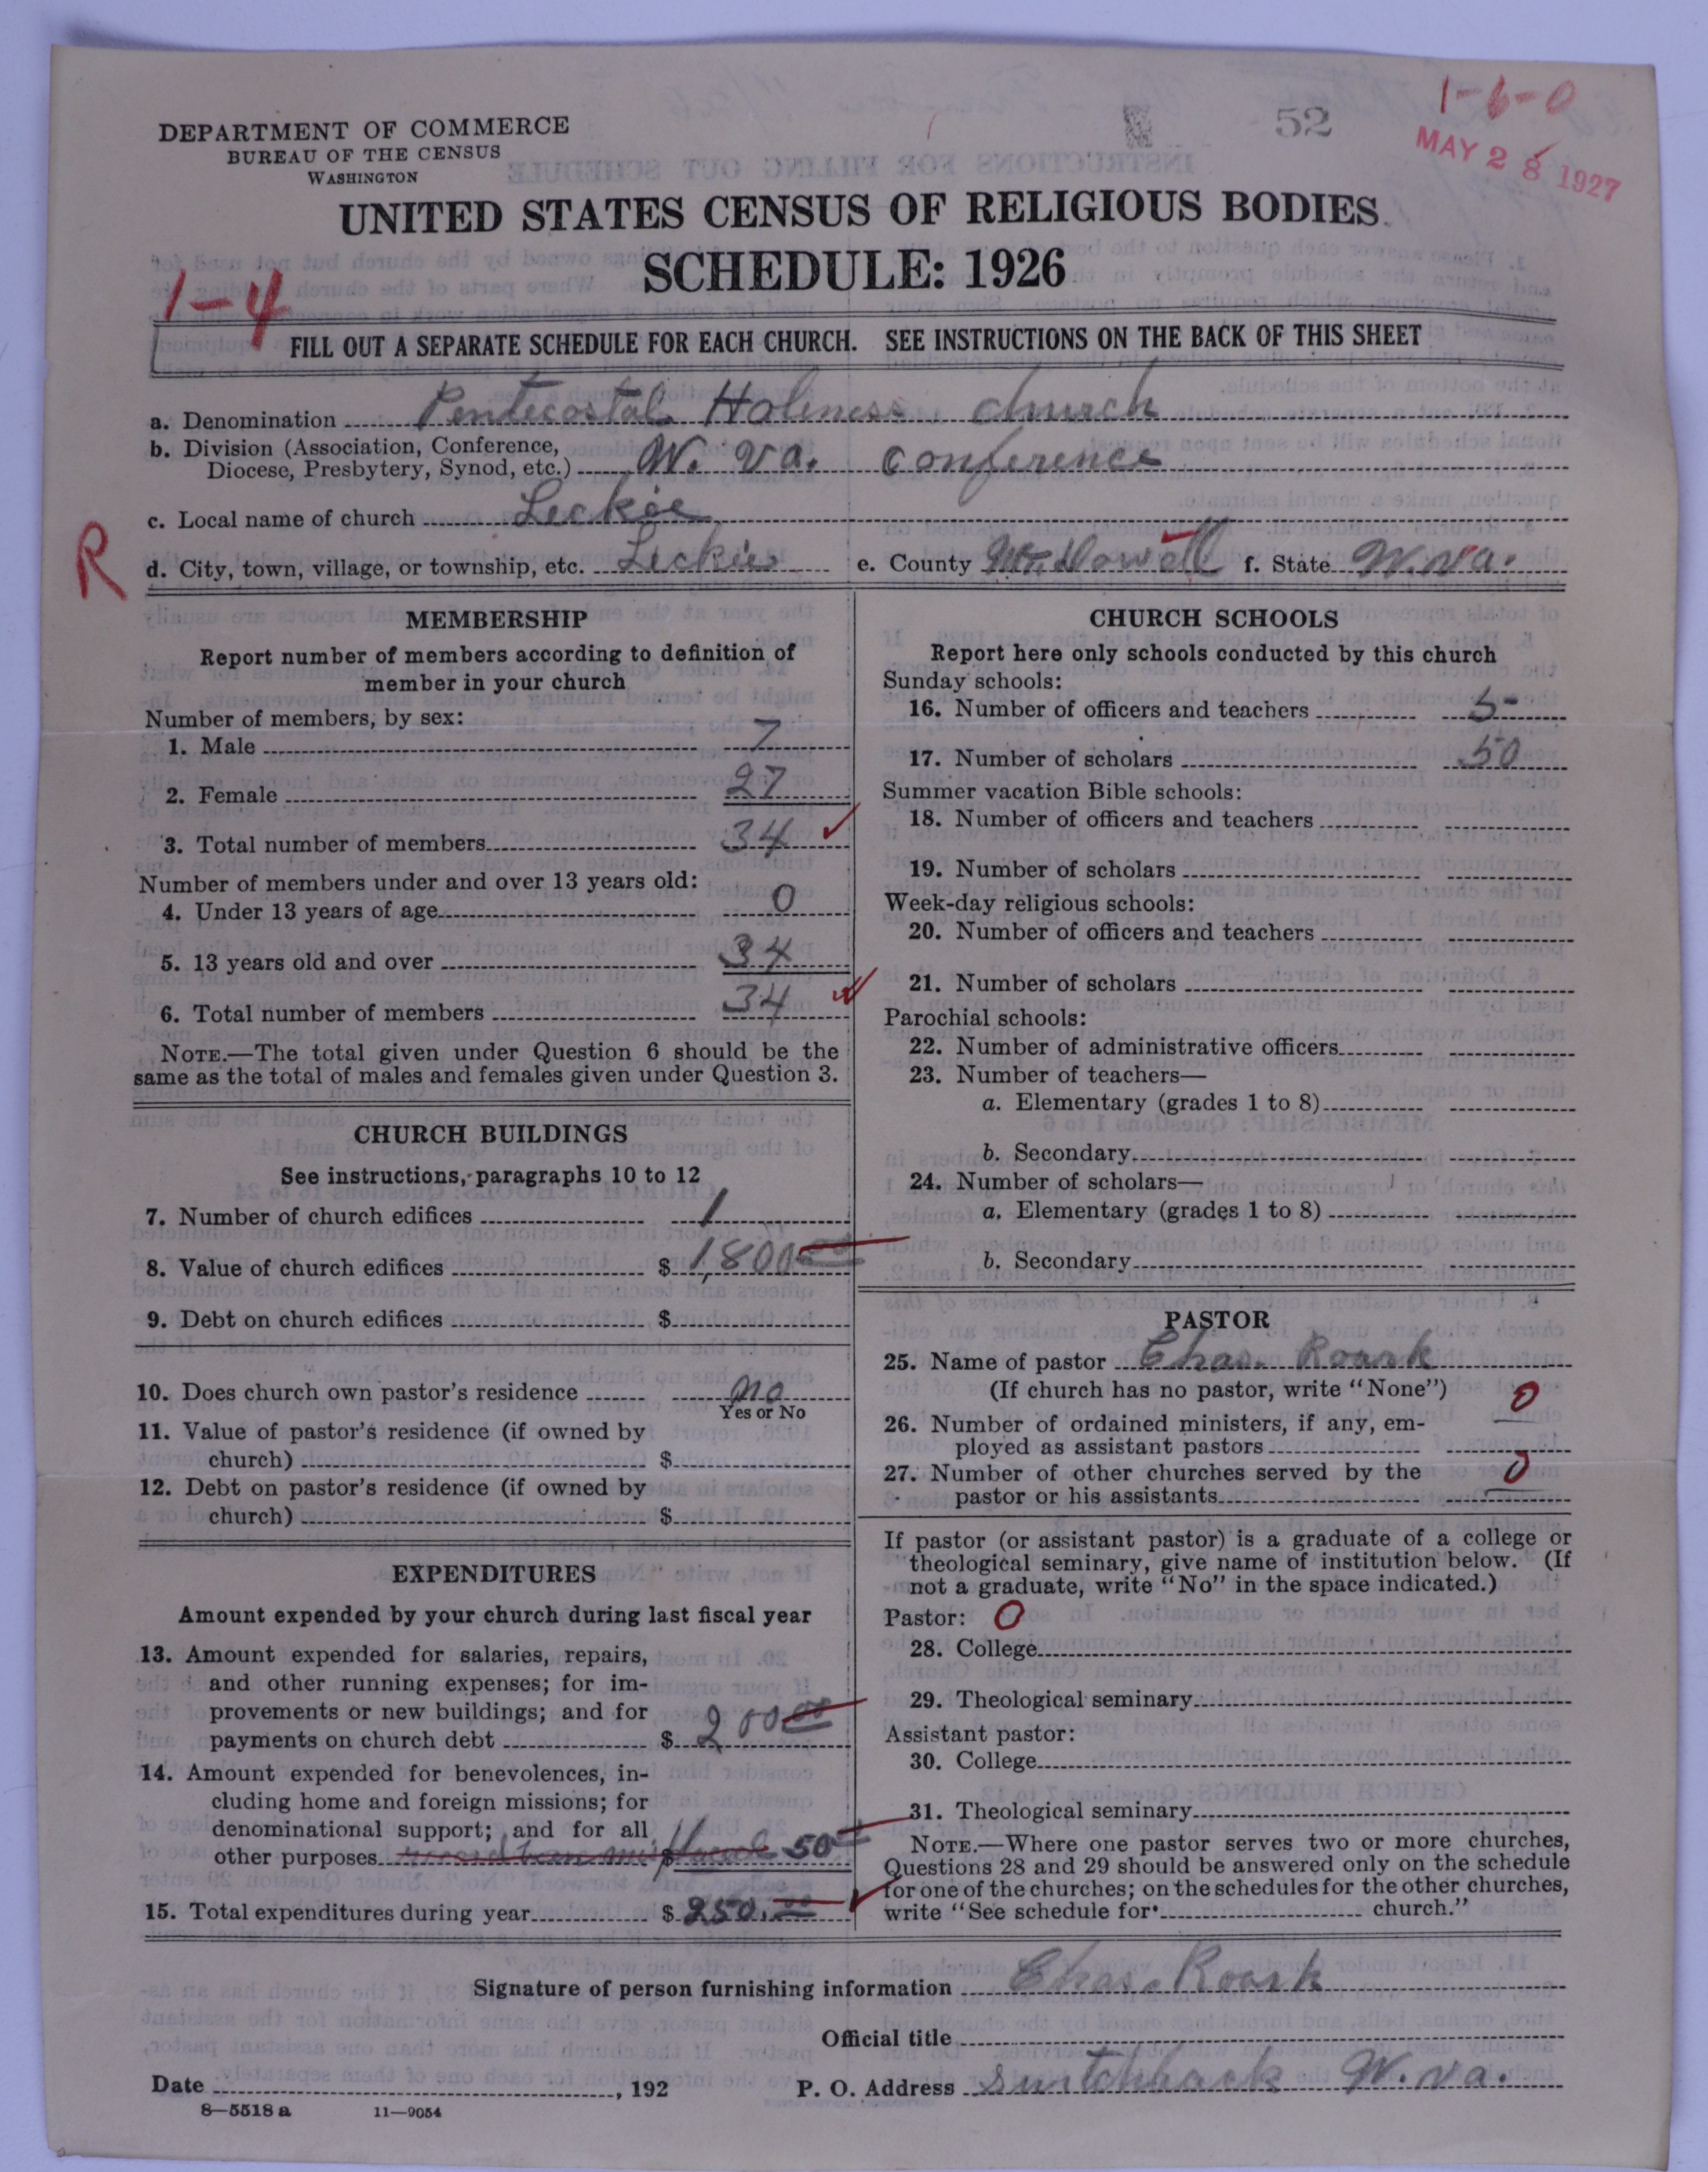 1-6-0
52
MAY 28 1927
DEPARTMENT OF COMMERCE
BUREAU OF THE CENSUS
WASHINGTON
UNITED STATES CENSUS OF RELIGIOUS BODIES
SCHEDULE: 1926
1-4
FILL OUT A SEPARATE SCHEDULE FOR EACH CHURCH. SEE INSTRUCTIONS ON THE BACK OF THIS SHEET
a. Denomination Pentecostal Holiness church
b. Division (Association, Conference,
Diocese, Presbytery, Synod, etc.) W. va. conference
c. Local name of church Leckie
R
d. City, town, village, or township, etc. Leckie e. County McDowell f. State W.va.
MEMBERSHIP
Report number of members according to definition of
member in your church
Number of members, by sex:
1. Male 7
2. Female 27
3. Total number of members 34
Number of members under and over 13 years old:
4. Under 13 years of age 0
5. 13 years old and over 34
6. Total number of members 34
NOTE.—The total given under Question 6 should be the
same as the total of males and females given under Question 3.
CHURCH BUILDINGS
See instructions, paragraphs 10 to 12
7. Number of church edifices 1
8. Value of church edifices $ 1,800 00
9. Debt on church edifices $
10. Does church own pastor's residence no
Yes or No
11. Value of pastor's residence (if owned by
church) $
12. Debt on pastor's residence (if owned by
church) $
EXPENDITURES
Amount expended by your church during last fiscal year
13. Amount expended for salaries, repairs,
and other running expenses; for im-
provements or new buildings; and for
payments on church debt $ 200 00
14. Amount expended for benevolences, in-
cluding home and foreign missions; for
denominational support; and for all
other purposes $ 50
15. Total expenditures during year $ 250.00
CHURCH SCHOOLS
Report here only schools conducted by this church
Sunday schools:
16. Number of officers and teachers 5
17. Number of scholars 50
Summer vacation Bible schools:
18. Number of officers and teachers
19. Number of scholars
Week-day religious schools:
20. Number of officers and teachers
21. Number of scholars
Parochial schools:
22. Number of administrative officers
23. Number of teachers—
a. Elementary (grades 1 to 8)
b. Secondary
24. Number of scholars—
a. Elementary (grades 1 to 8)
b. Secondary
PASTOR
25. Name of pastor Chas. Roark
(If church has no pastor, write "None") 0
26. Number of ordained ministers, if any, em-
ployed as assistant pastors
27. Number of other churches served by the 0
pastor or his assistants
If pastor (or assistant pastor) is a graduate of a college or
theological seminary, give name of institution below. (If
not a graduate, write "No" in the space indicated.)
Pastor: 0
28. College
29. Theological seminary
Assistant pastor:
30. College
31. Theological seminary
NOTE.—Where one pastor serves two or more churches,
Questions 28 and 29 should be answered only on the schedule
for one of the churches; on the schedules for the other churches,
write "See schedule for church."
Signature of person furnishing information Chas. Roark
Official title
Date , 192 P. O. Address Switchback W.va.
8—5518 a 11—9054